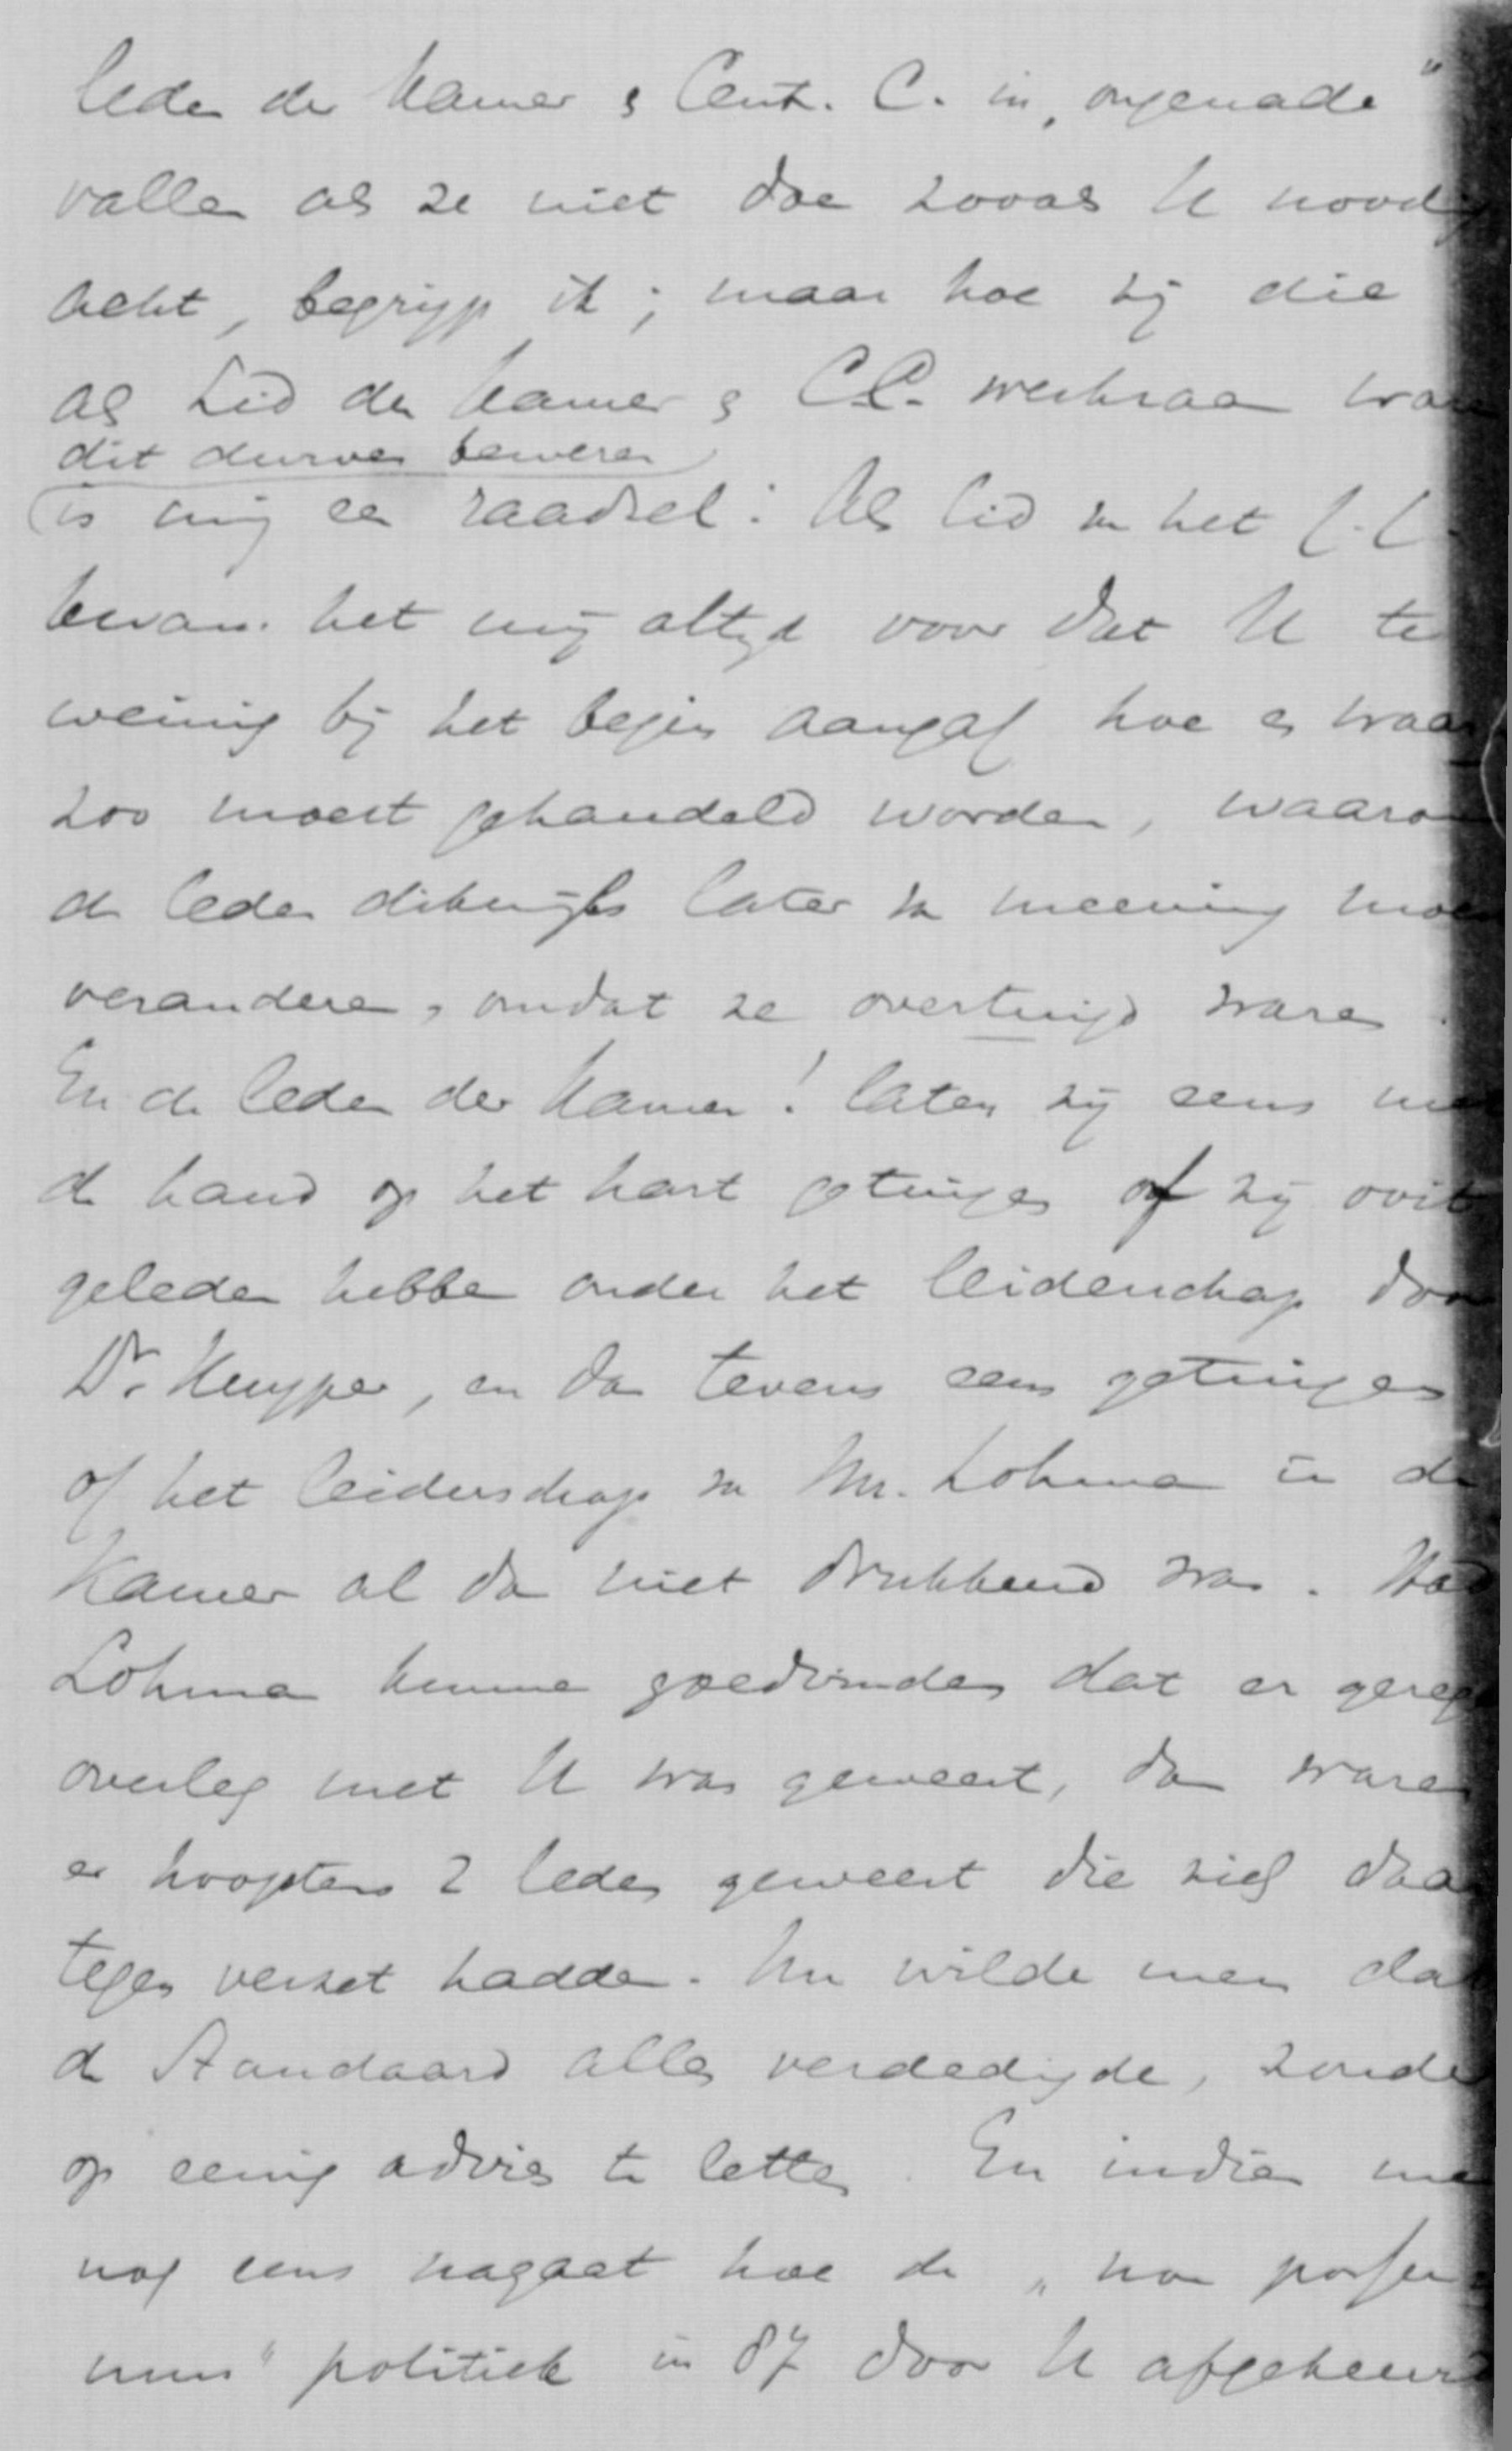 leden der Kamer & Cent. C. in „ongenade"
vallen als ze niet doen zooals U noodig
acht, begrijp ik; maar hoe zij die
als Lid der Kamer & C.C. werkzaam waren
dit durven beweren
is mij een raadsel: Als lid van het C.C.
kwam het mij altijd voor dat U te
weinig bij het begin aangaf hoe en waarom
zoo moest gehandeld worden, waarom
de leden dikwijls later van meening moesten
veranderen, omdat ze overtuigd waren.
En de leden der Kamer! laten zij eens met
de hand op het hart getuigen of zij ooit
geleden hebben onder het leidenschap door
Dr. Kuyper, en dan tevens eens getuigen
of het leiderschap van Mr. Lohman in de
Kamer al dan niet drukkend was. Had
Lohman kunnen goedvinden dat er geregeld
overleg met U was geweest, dan waren
er hoogstens 2 leden geweest die zich daar
tegen verzet hadden. Nu wilde men dat
de Standaard alles verdedigde, zonder
op eenig advies te letten. En indien men
nog eens nagaat hoe de „non possu
mus" politiek in 87 door U afgekeurd